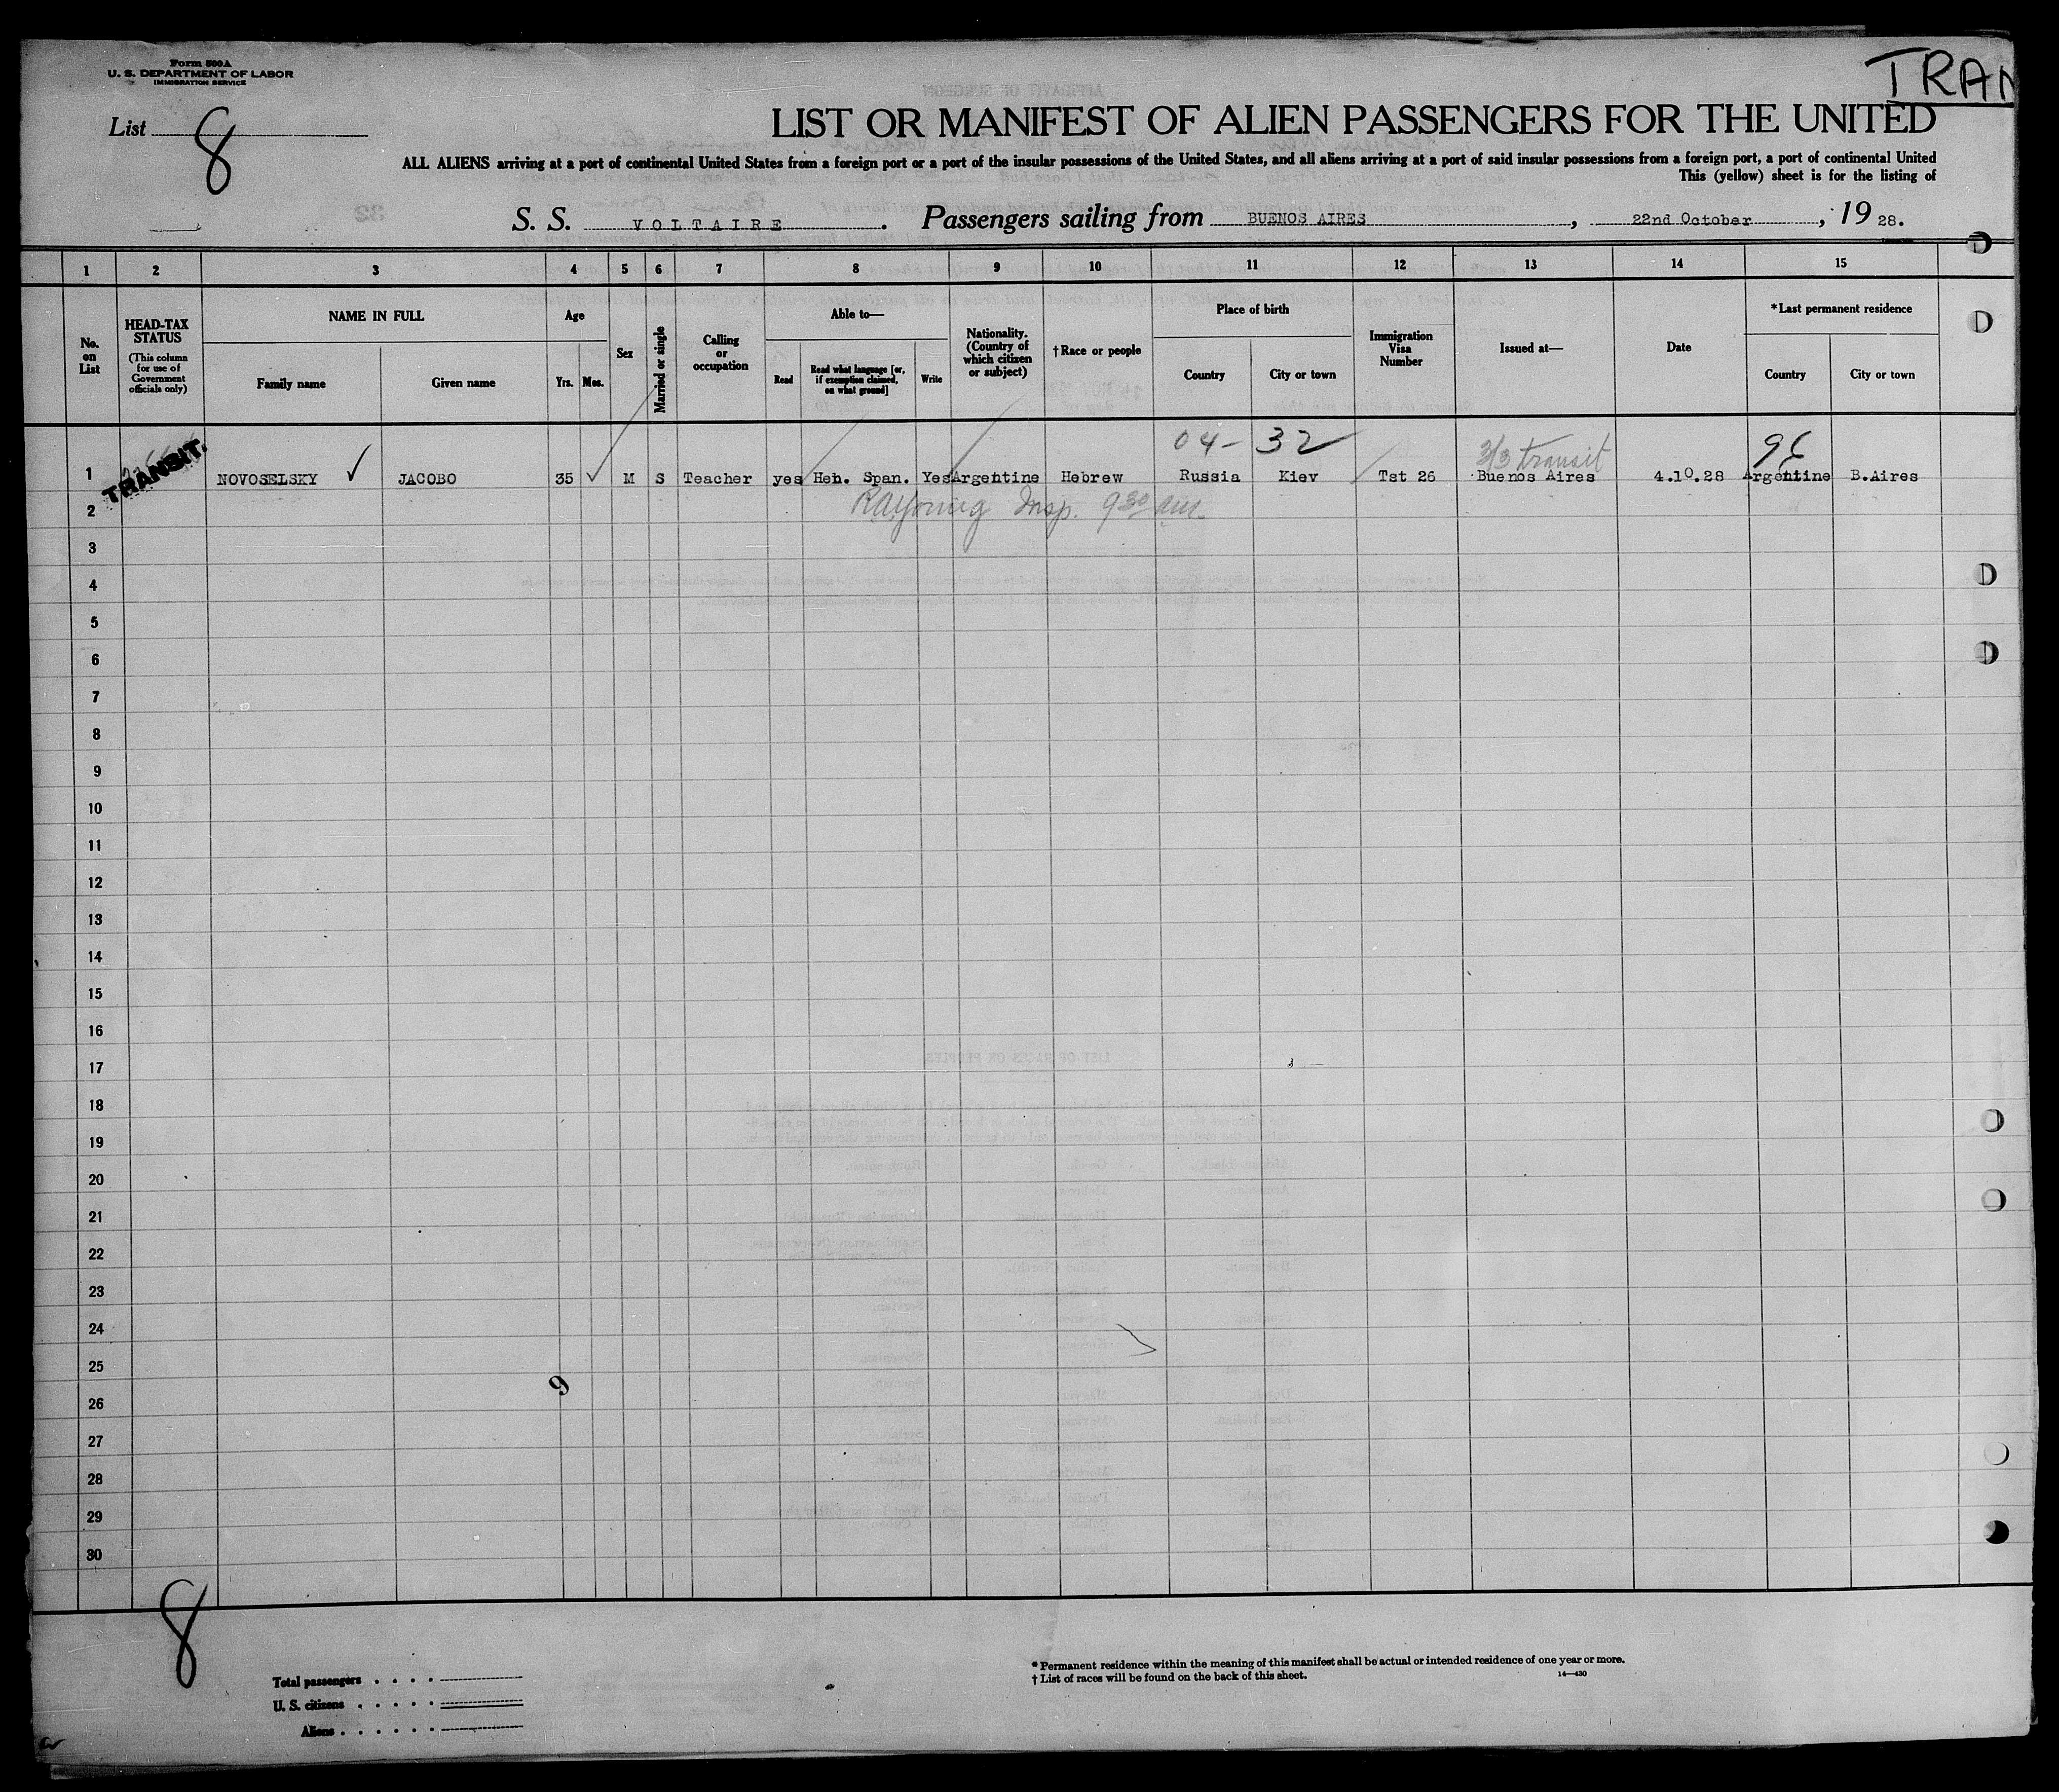 Form 500A
U. S. DEPARTMENT OF LABOR
IMMIGRATION SERVICE
TRAN
List 8
LIST OR MANIFEST OF ALIEN PASSENGERS FOR THE UNITED
ALL ALIENS arriving at a port of continental United States from a foreign port or a port of the insular possessions of the United States, and all aliens arriving at a port of said insular possessions from a foreign port, a port of continental United
This (yellow) sheet is for the listing of
S. S. VOLTAIRE. Passengers sailing from BUENOS AIRES, 22nd October, 1928.
1 2 3 4 5 6 7 8 9 10 11 12 13 14 15
No. on List
HEAD-TAX STATUS
(This column for use of Government officials only)
NAME IN FULL
Family name Given name
Age
Yrs. Mos.
Sex
Married or single
Calling or occupation
Able to—
Read
Read what language [or, if exemption claimed, on what ground]
Write
Nationality. (Country of which citizen or subject)
†Race or people
Place of birth
Country City or town
Immigration Visa Number
Issued at—
Date
*Last permanent residence
Country City or town
04- 32
3/3 transit
TRANSIT.
1 NOVOSELSKY JACOBO 35 M S Teacher yes Heb. Span. Yes Argentine Hebrew Russia Kiev Tst 26 Buenos Aires 4.10.28 Argentine B.Aires
2 Insp. 9 30 am.
3
4
5
6
7
8
9
10
11
12
13
14
15
16
17
18
19
20
21
22
23
24
25
9
26
27
28
29
30
8
Total passengers
U. S. citizens
Aliens
* Permanent residence within the meaning of this manifest shall be actual or intended residence of one year or more.
† List of races will be found on the back of this sheet.
14—430